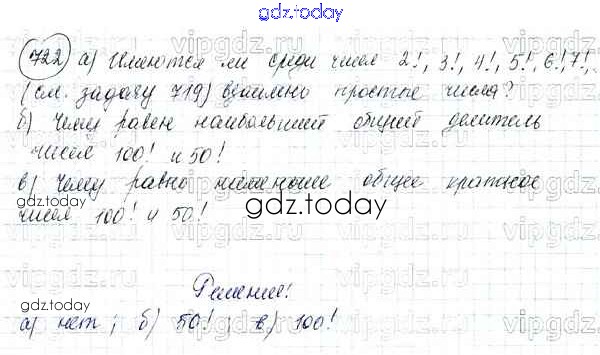 gdz.today
722 а) Имеются ли среди чисел 2!, 3!, 4!, 5!, 6!, 7!,
(см. задачу 719) взаимно простые числа?
б) Чему равен наибольший общий делитель
чисел 100! и 50!
в) Чему равно наименьшее общее кратное
gdz.today
чисел 100! и 50!
gdz.today
Решение:
gdz.today
а) нет; б) 50!; в) 100!
vipgdz.ru